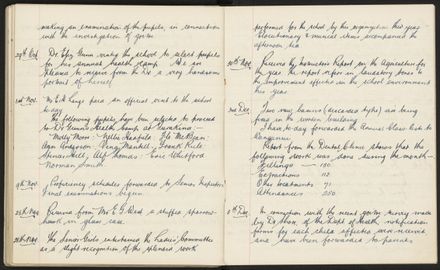 making an examination of the pupils, in connection
with the investigation of goitre
29th Oct. Dr Eliz Gunn visits the school to select pupils
for her annual health camp.
pleased to receive from the Dr a very handsome
portrait of herself
2nd Nov. Mr E. H. Lange paid an official visit to the school
to-day
The following pupils have been selected to proceed
to Dr Gunn's Health Camp at Turakina:-
Molly Moon:- Melba
Joan Anderson. Percy Mantell. Frank Rule.
Steve Hill, Alf Thomas:-
Norman Smith
9th Nov. Proficiency schedules forwarded to Senior Inspector.
Final examinations begun.
25th Nov. Received from Mr E. G. Reid a stuffed sparrow-
hawk in glass case.
28th Nov. The Senior Girls entertained the Ladies' Committee
as a slight recognition of the splendid work
performed for the school by this organisation this year
Elocutionary & musical items accompanied the
afternoon tea
30th Nov. Receive the Instructor's Report on the Agriculture for
the year. The report refers in laudatory tones to
the improvement effected in the school environment
this year
2nd Dec. Two more bamos (discarded types) are being
fired in the modern building
I have to-day forwarded the Annual Class Lists to
Wanganui
Report from the Dental Clinic shows that the
following work was done during the month-
Fillings — 150
Extractions 112
Other treatments 71
Attendances 250
5th Dec. In connection with the recent goitre survey made
by Dr of the Dept of Health notification
forms for each child affected were received
and have been forwarded to parents